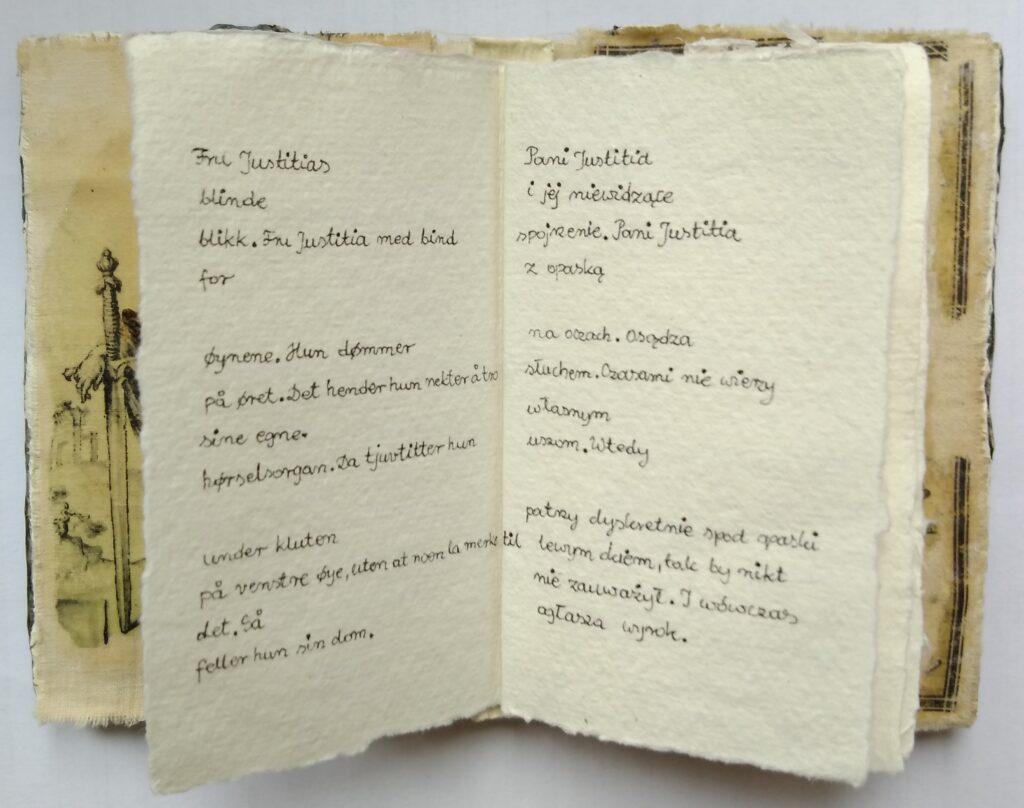 Fru Justitias
blinde
blikk. Fru Justitia med bind
for
øynene. Hun dømmer
på øret. Det hender hun nekter å tro
sine egne.
hørselsorgan. Da tjuvtitter hun
under kluten
på venstre øye, uten at noen la merke til
det. Så
feller hun sin dom.
Pani Justitia
i jej niewidzące
spojrzenie. Pani Justitia
z opaską
na oczach. Osądza
słuchem. Czasami nie wierzy
własnym
uszom. Wtedy
patrzy dyskretnie spod opaski
lewym okiem, tak by nikt
nie zauważył. I wówczas
ogłasza wyrok.